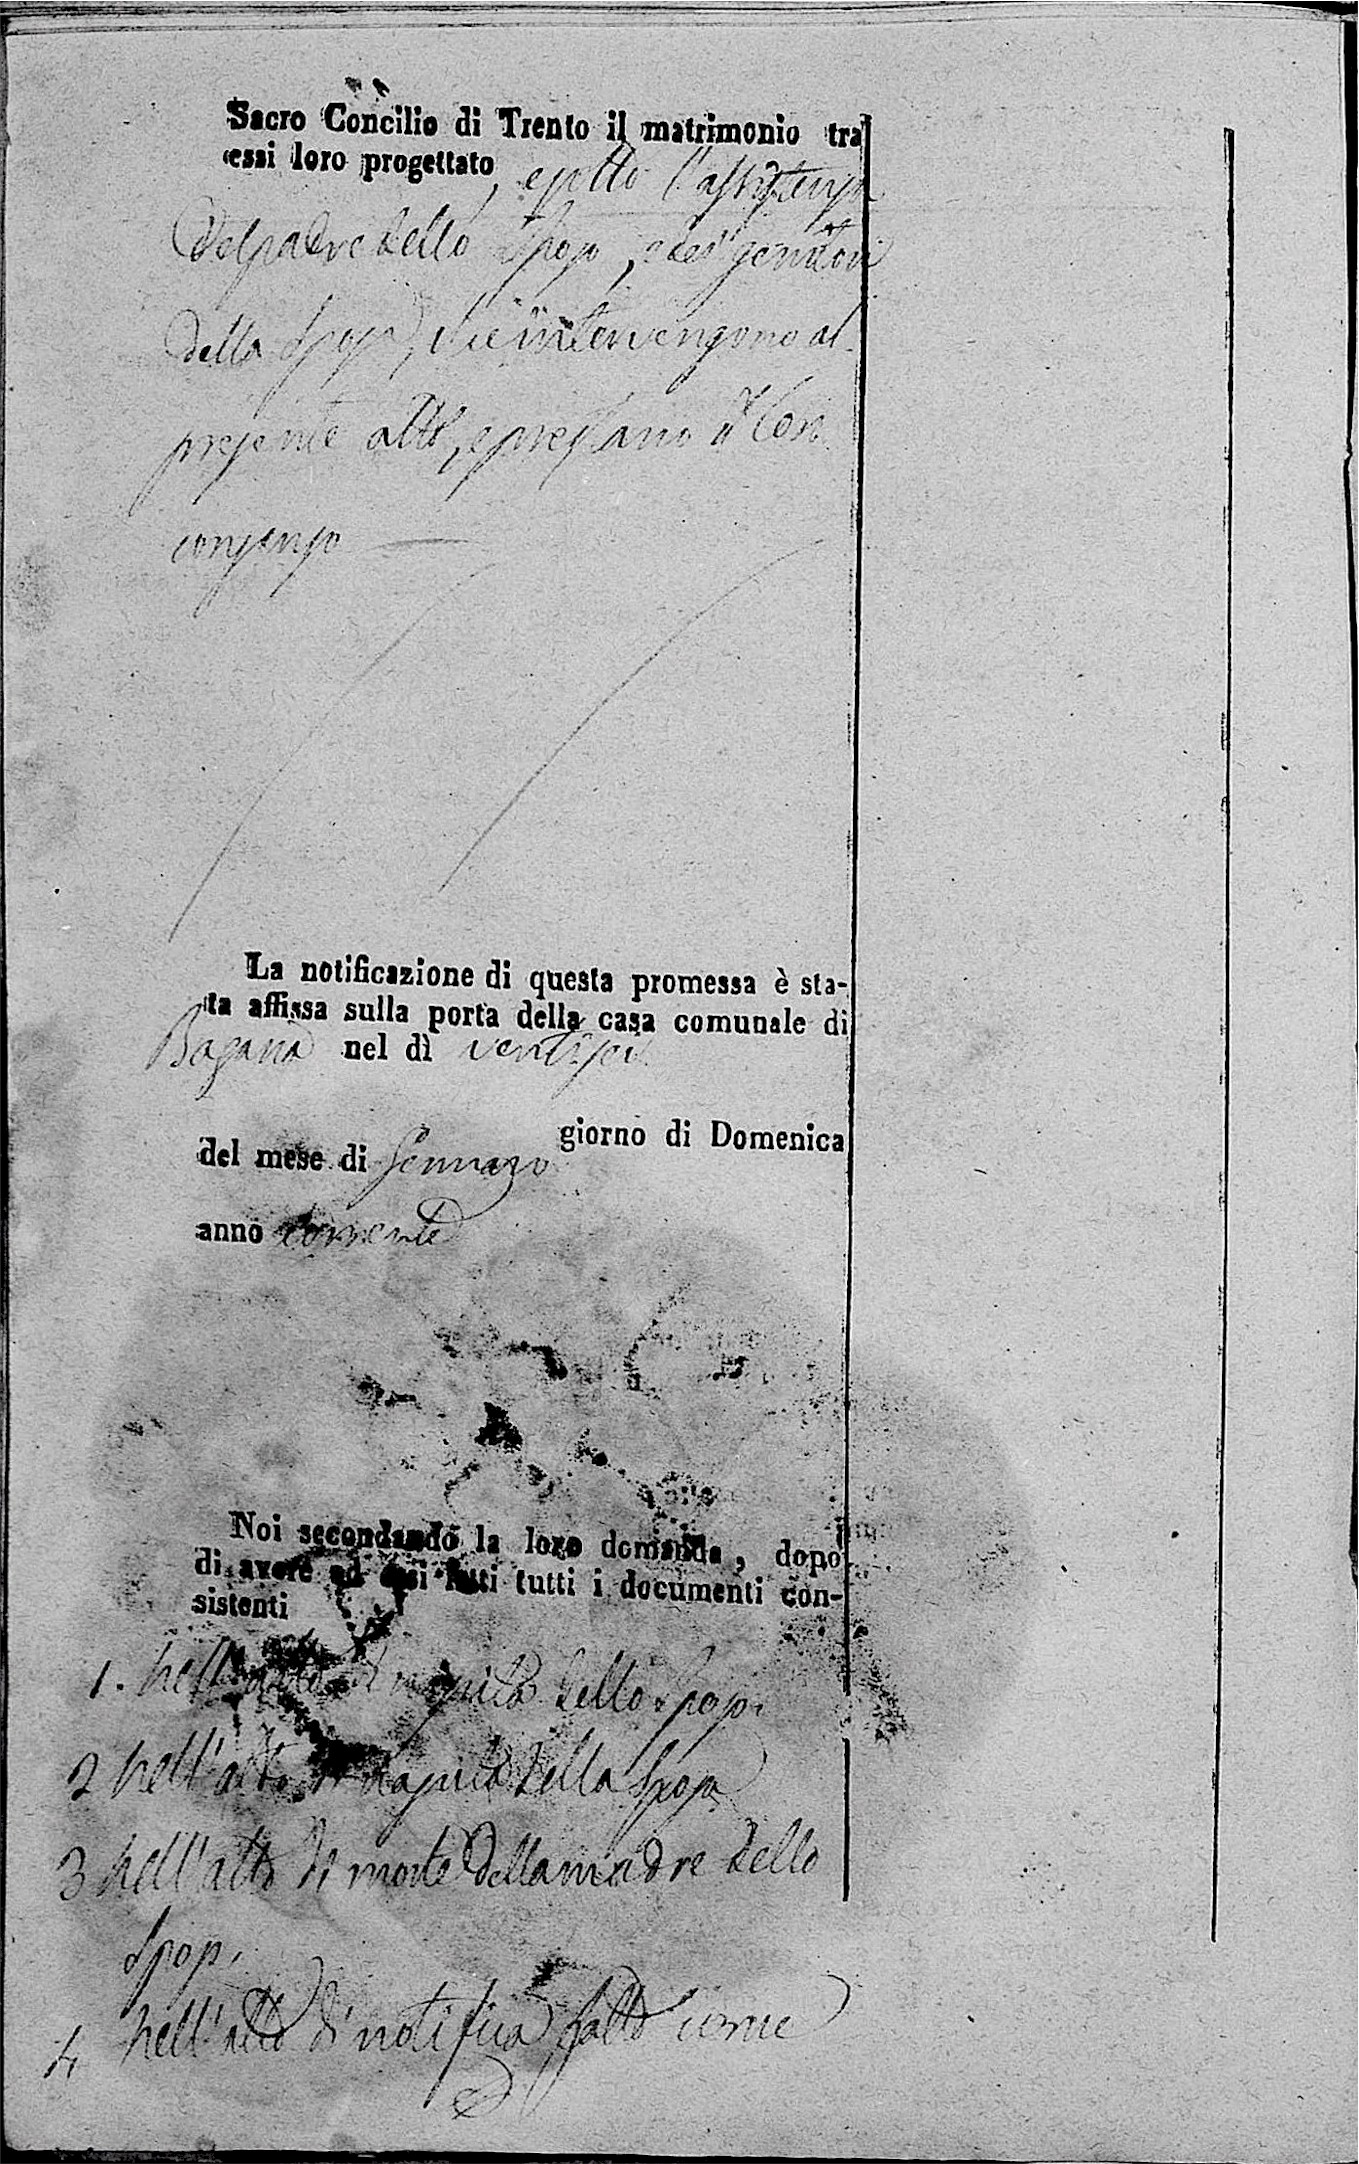 Sacro Concilio di Trento il matrimonio tra
essi loro progettato, e sotto l'assistenza
del padre dello Sposo, e dei genitori
della Sposa, che intervengono al
presente atto, e prestano il lor
consenso
La notificazione di questa promessa è sta-
ta affissa sulla porta della casa comunale di
nel dì ventisei
giorno di Domenica
del mese di Gennaro
anno corrente
Noi secondando la loro domanda, dopo
di avere ad essi letti tutti i documenti con-
sistenti
1. Nell'atto di nascita dello Sposo.
2 Nell'atto di nascita della Sposa
3 Nell'atto di morte della madre dello
Sposo.
4 Nell'atto di notifica fatto come